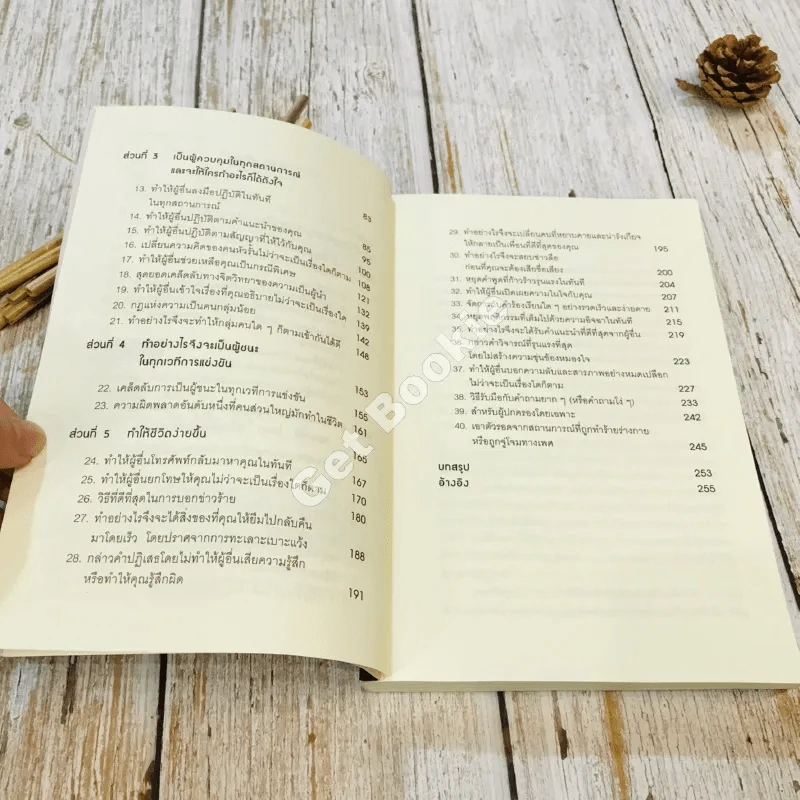 ส่วนที่ 3 เป็นผู้ควบคุมในทุกสถานการณ์
และจะให้ใครทำอะไรก็ได้ดังใจ
13. ทำให้ผู้อื่นลงมือปฏิบัติในทันที
ในทุกสถานการณ์ 83
14. ทำให้ผู้อื่นปฏิบัติตามคำแนะนำของคุณ 85
15. ทำให้ผู้อื่นปฏิบัติตามสัญญาที่ให้ไว้กับคุณ 95
16. เปลี่ยนความคิดของคนหัวรั้นไม่ว่าจะเป็นเรื่องใดก็ตาม 100
17. ทำให้ผู้อื่นช่วยเหลือคุณเป็นกรณีพิเศษ 108
18. สุดยอดเคล็ดลับทางจิตวิทยาของความเป็นผู้นำ 121
19. ทำให้ผู้อื่นเข้าใจเรื่องที่คุณอธิบายไม่ว่าจะเป็นเรื่องใด 132
20. กฎแห่งความเป็นคนกลุ่มน้อย 139
21. ทำอย่างไรจึงจะทำให้กลุ่มคนใด ๆ ก็ตามเข้ากันได้ดี 142
148
ส่วนที่ 4 ทำอย่างไรจึงจะเป็นผู้ชนะ
ในทุกเวทีการแข่งขัน
22. เคล็ดลับการเป็นผู้ชนะในทุกเวทีการแข่งขัน 153
23. ความผิดพลาดอันดับหนึ่งที่คนส่วนใหญ่มักทำในชีวิต 155
161
ส่วนที่ 5 ทำให้ชีวิตง่ายขึ้น
24. ทำให้ผู้อื่นโทรศัพท์กลับมาหาคุณในทันที 165
25. ทำให้ผู้อื่นยกโทษให้คุณไม่ว่าจะเป็นเรื่องใดก็ตาม 167
26. วิธีที่ดีที่สุดในการบอกข่าวร้าย 170
27. ทำอย่างไรจึงจะได้สิ่งของที่คุณให้ยืมไปกลับคืน 180
มาโดยเร็ว โดยปราศจากการทะเลาะเบาะแว้ง
28. กล่าวคำปฏิเสธโดยไม่ทำให้ผู้อื่นเสียความรู้สึก 188
หรือทำให้คุณรู้สึกผิด
191
29. ทำอย่างไรจึงจะเปลี่ยนคนที่หยาบคายและน่ารังเกียจ
ให้กลายเป็นเพื่อนที่ดีที่สุดของคุณ 195
30. ทำอย่างไรจึงจะสยบข่าวลือ
ก่อนที่คุณจะต้องเสียชื่อเสียง 200
31. หยุดคำพูดที่ก้าวร้าวรุนแรงในทันที 204
32. ทำให้ผู้อื่นเปิดเผยความในใจกับคุณ 207
33. จัดการกับคำร้องเรียนใด ๆ อย่างรวดเร็วและง่ายดาย 211
34. หยุดพฤติกรรมที่เต็มไปด้วยความอิจฉาในทันที 215
35. ทำอย่างไรจึงจะได้รับคำแนะนำที่ดีที่สุดจากผู้อื่น 219
36. กล่าวคำวิจารณ์ที่รุนแรงที่สุด
โดยไม่สร้างความขุ่นข้องหมองใจ 223
37. ทำให้ผู้อื่นบอกความลับและสารภาพอย่างหมดเปลือก
ไม่ว่าจะเป็นเรื่องใดก็ตาม 227
38. วิธีรับมือกับคำถามยาก ๆ (หรือคำถามโง่ ๆ) 233
39. สำหรับผู้ปกครองโดยเฉพาะ 242
40. เอาตัวรอดจากสถานการณ์ที่ถูกทำร้ายร่างกาย
หรือถูกจู่โจมทางเพศ 245
บทสรุป 253
อ้างอิง 255
Get Bookie